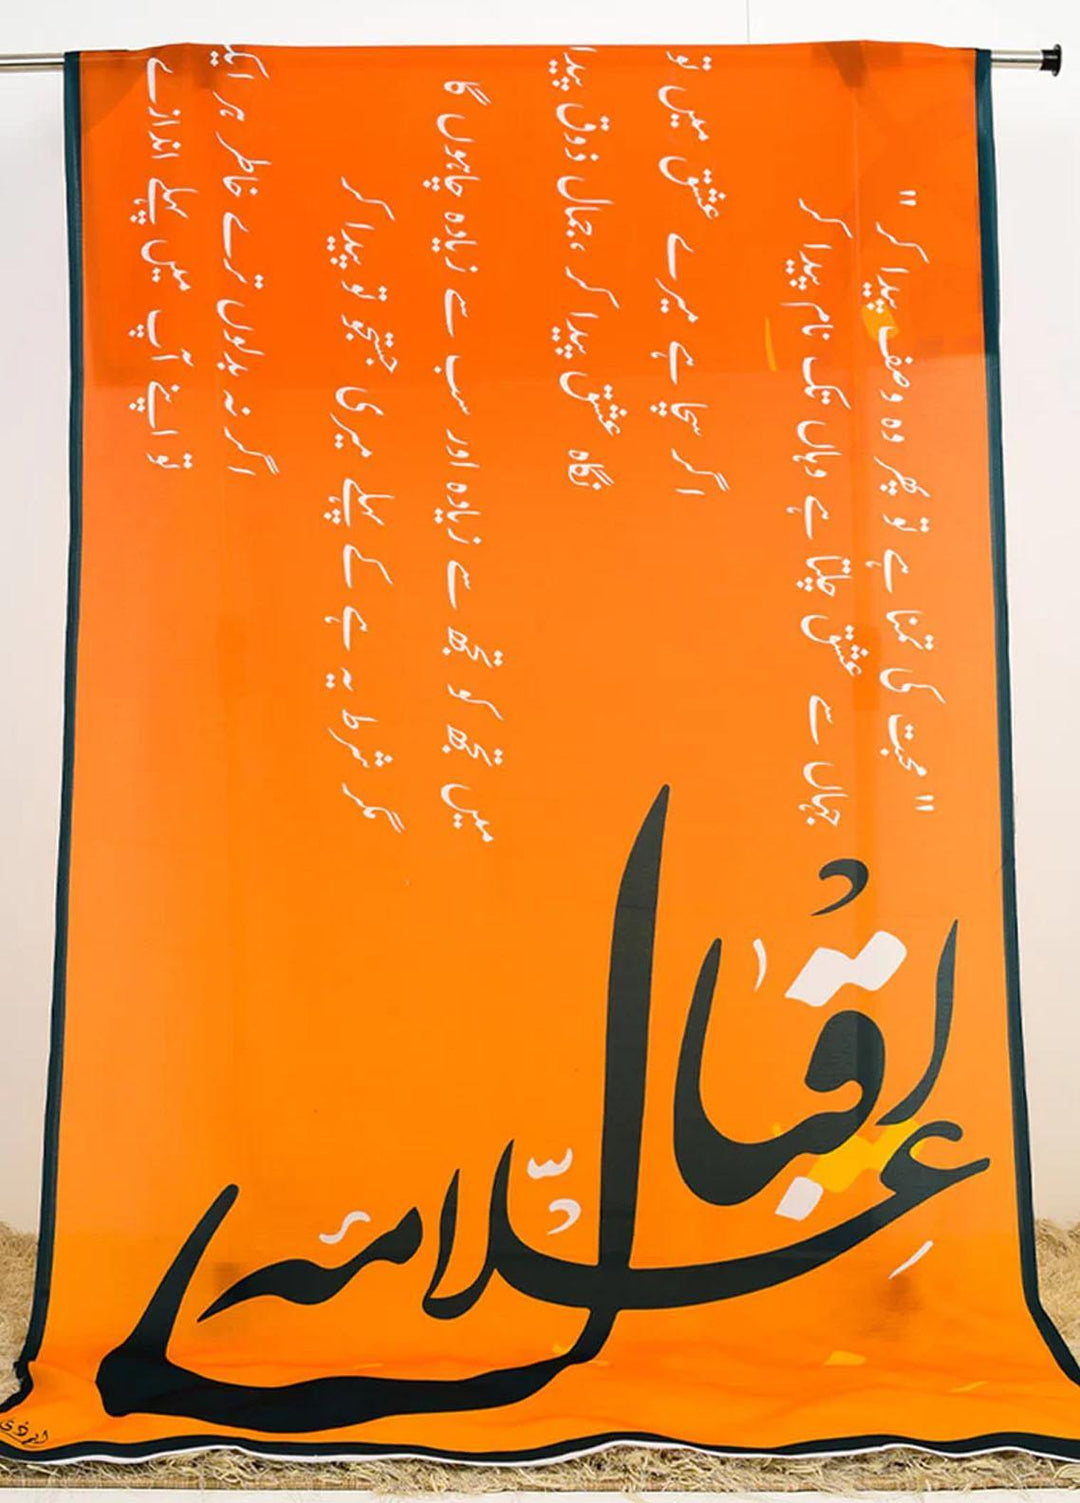 " محبت کی تمنا ہے تو پھر وہ وصف پیدا کر "
جہاں سے عشق چلتا ہے وہاں تک نام پیدا کر
اگر سچا ہے میرے عشق میں تو
نگاہ عشق پیدا کر، جمال ذوق پیدا
میں تجھ کو تجھ سے زیادہ اور سب سے زیادہ چاہوں گا
مگر شرط یہ ہے کے پہلے میری جستجو تو پیدا کر
اگر نہ بدلوں ترے خاطر ہر ایک
تو اپنے آپ میں پہلے اندازے
علامہ اقبال